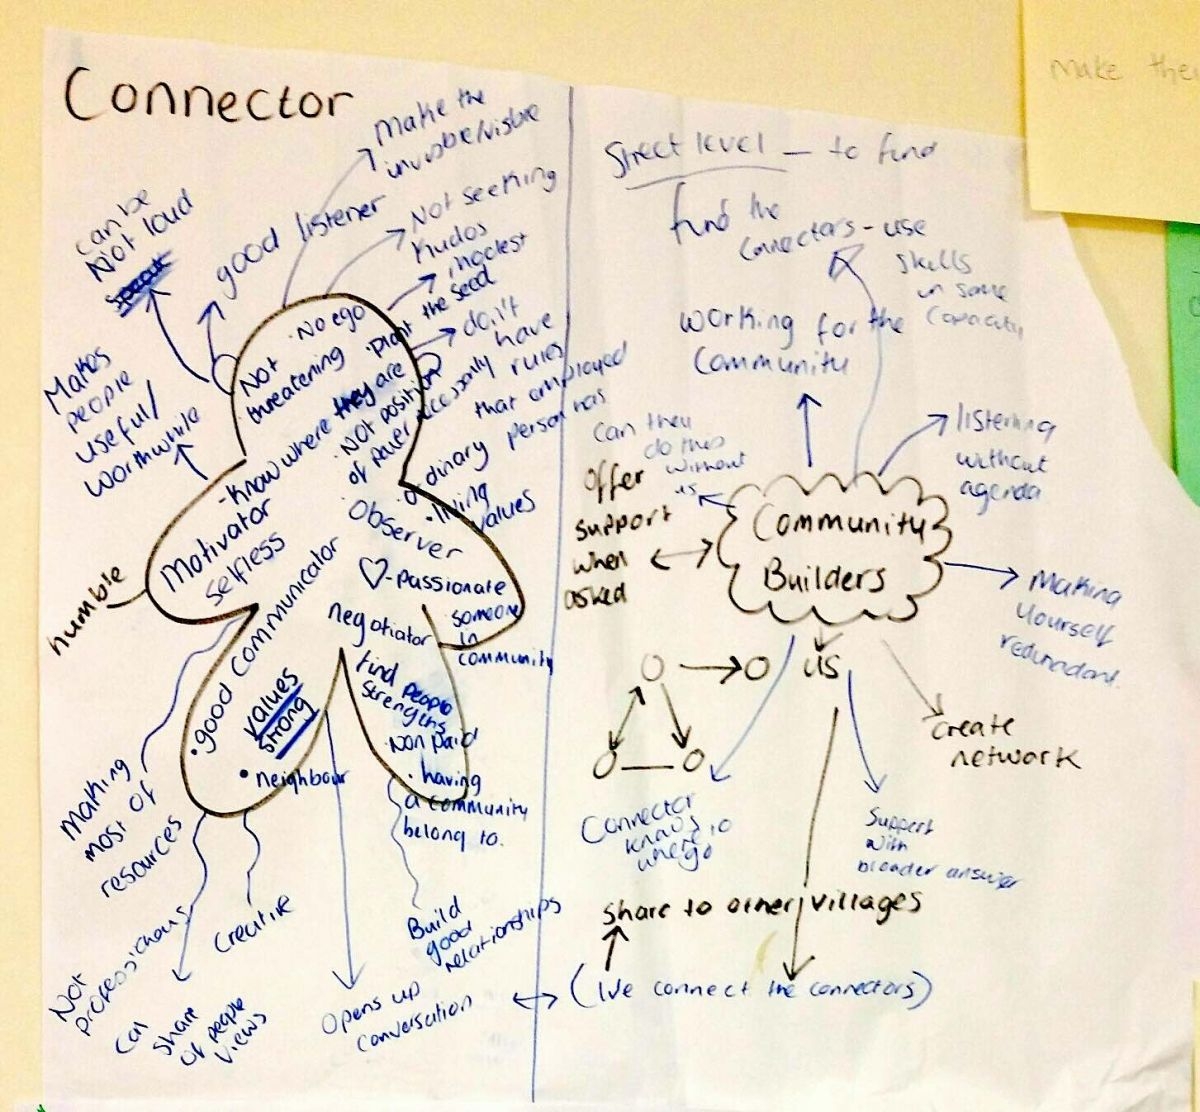 Connector
make the
invisible/visible
Not seeking
kudos
modest
good listener
can be
Not loud
Makes
people
useful/
worthwhile
humble
No ego
Not
threatening
plant the seed
know where they are
Not position
of power
don't
necessarily have
rules
that employed
person has
ordinary
living
values
Motivator
Selfless
Observer
♡-passionate
good communicator
negotiator
someone
in
community
find people
strengths
Non paid
having
a community
belong to.
values
strong
neighbour
Making
most of
resources
Not
professionals
can
share
of people
views
creative
Opens up
conversation
Build
good
relationships
Street level - to find
find the
connectors - use
skills
in some
capacity
working for the
community
can they
do this
without
us
Offer
support
when
asked
listening
without
agenda
Community
Builders
Making
yourself
redundant.
us
create
network
Connector
knows
where to
go
Support
with
broader answer
Share to other villages
(we connect the connectors)
Make